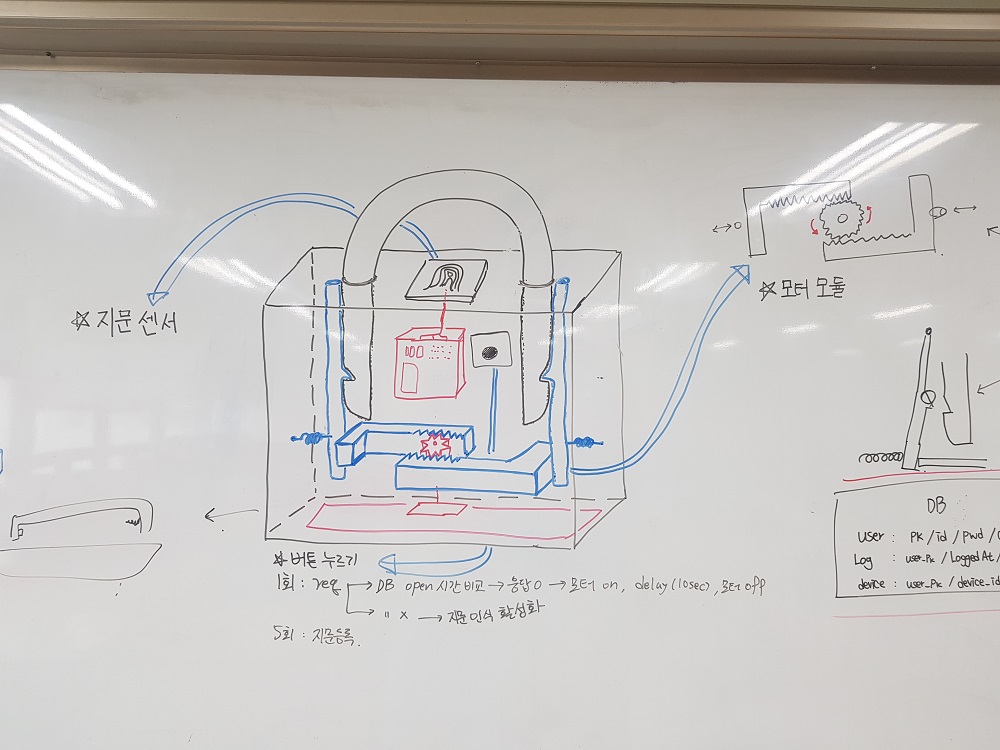 ☆ 지문 센서
☆ 모터 모듈
☆ 버튼 누르기
1회 : req → DB open 시간 비교 → 응답 O → 모터 on, delay (10sec), 모터 off
→ " x → 지문 인식 활성화
5회 : 지문등록.
DB
user : PK / id / pwd /
Log : user_PK / LoggedAt /
device : user_PK / device_id